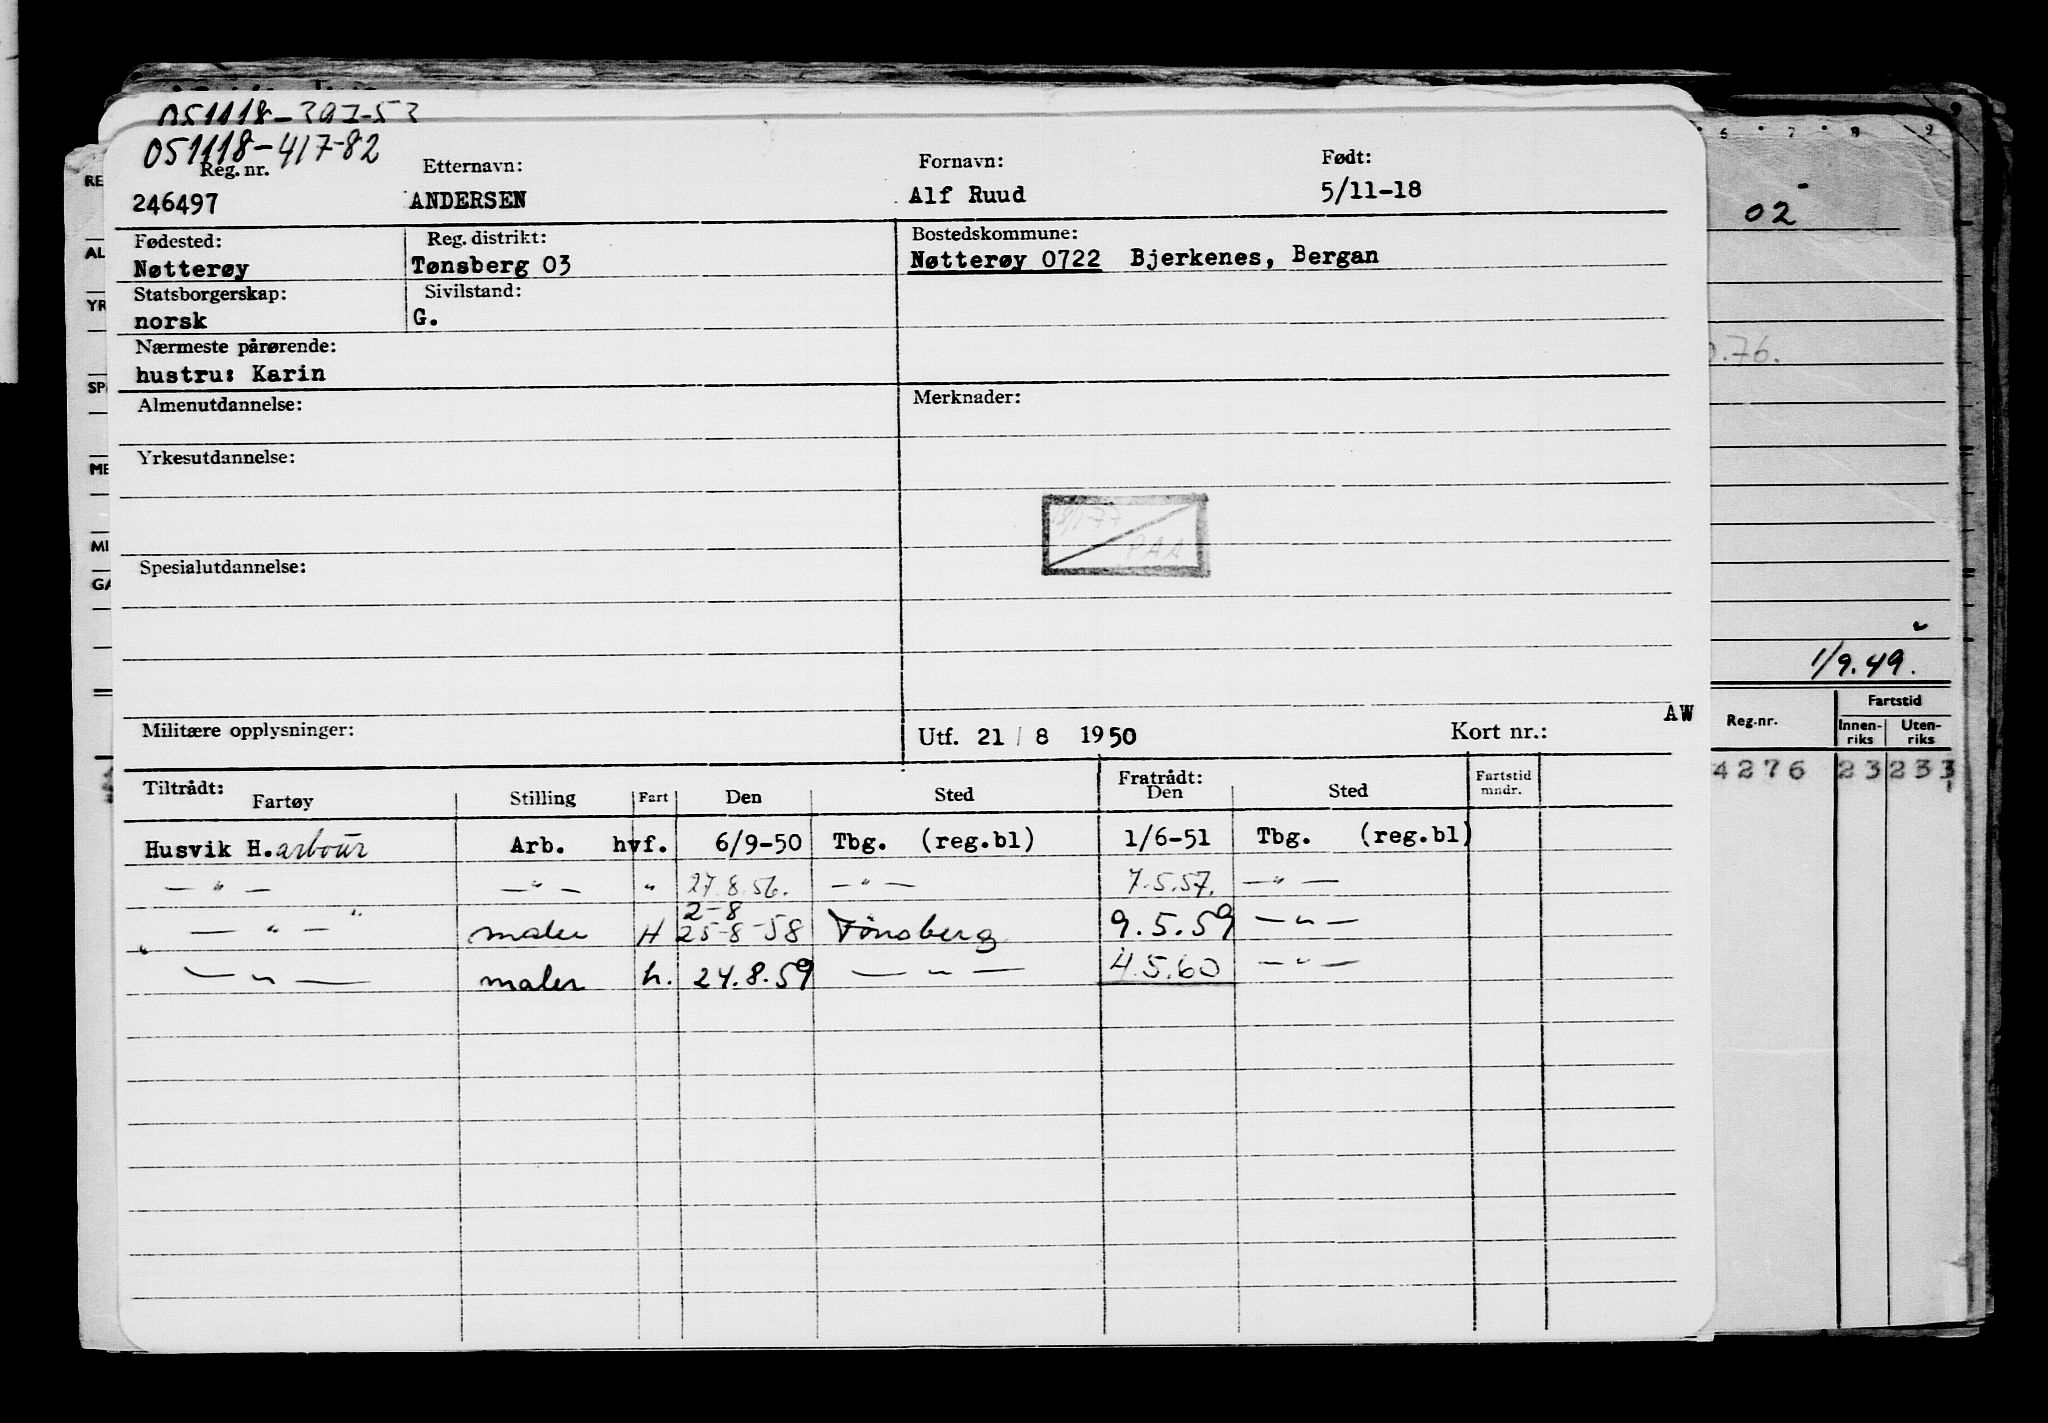 051118-397-53
051118-417-82
Reg. nr. Etternavn: Fornavn: Født:
246497 ANDERSEN Alf Ruud 5/11-18
Fødested: Reg. distrikt: Bostedskommune:
Nøtterøy Tønsberg 03 Nøtterøy 0722 Bjerkenes, Bergan
Statsborgerskap: Sivilstand:
norsk G.
Nærmeste pårørende:
hustru: Karin
Almenutdannelse: Merknader:
Yrkesutdannelse:
PAA
Spesialutdannelse:
Militære opplysninger: Utf. 21 / 8 1950 Kort nr.: AW
Tiltrådt: Fratrådt:
Fartøy Stilling Fart Den Sted Den Sted Fartstid mndr.
Husvik H.arbour Arb. hvf. 6/9-50 Tbg. (reg.bl) 1/6-51 Tbg. (reg.bl)
— " — — " — " 27.8.56. — " — 7.5.57. — " —
2-8
— " — " maler H 25-8-58 Tønsberg 9.5.59 — " —
" — " — maler h. 24.8.59 — " — 4.5.60 — " —
RE
AL
YR
SP
ME
MI
GA
6 7 8 9
02
.76.
1/9.49.
Reg.nr. Fartstid
Innen-riks Uten-riks
4276 23 233